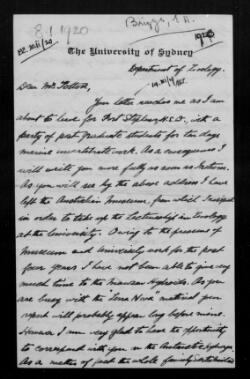 8.1.1920
Briggs, E.A.
The University of Sydney
Department of Zoology,
Dear Mr Totton,
Your letter reaches me as I am
about to leave for Port Stephens N.S.W. with a
party of post graduate students for ten days
marine invertebrate work. As a consequence I
will write you more fully as soon as I return.
As you will see by the above address I have
left the Australian Museum, from which I resigned
in order to take up the Lectureship in Zoology
at the University. Owing to the pressure of
Museum and University work for the past
four years I have not been able to give very
much time to the Mawson Hydroids. As you
are busy with the "Terra Nova" material your
report will probably appear long before mine.
However I am very glad to have the opportunity
to correspond with you on the Antarctic Hydroids.
As a matter of fact the whole family